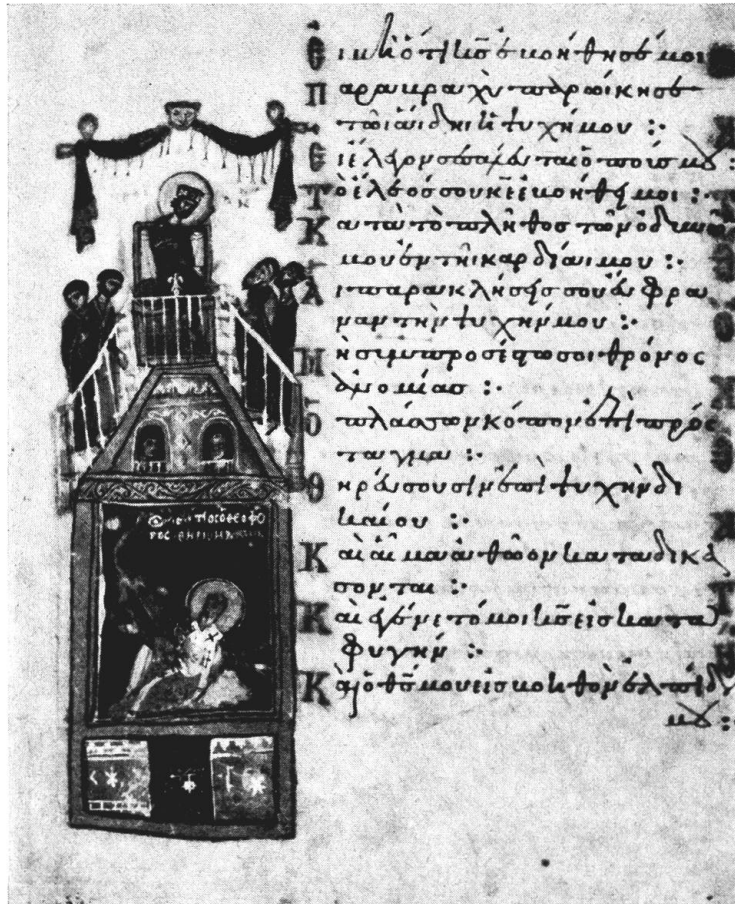 Εἰ μὴ ὅτι κ̅ς̅ ἐβοήθησέ μοι
Παρὰ βραχὺ παρώικησε
τῶι ἅιδηι ἡ ψυχή μου :·
Εἰ ἔλεγον σεσάλευται ὁ ποῦς μου :
Τὸ ἔλεός σου κ̅ε̅ ἐβοήθει μοι :·
Κατὰ τὸ πλῆθος τῶν ὀδυνῶν
μου ἐν τῆι καρδίαι μου :·
Αἱ παρακλήσεις σου εὔφρα
ναν τὴν ψυχήν μου :·
Μὴ συμπροσέστω σοι θρόνος
ἀνομίας :·
Ὁ πλάσσων κόπον ἐπὶ πρόσ
ταγμα :·
Θηρεύσουσιν ἐπὶ ψυχὴν δι
καίου :·
Καὶ αἷμα ἀθῶον καταδικά
σονται :·
Καὶ ἐγένετό μοι κ̅ς̅ εἰς κατα
φυγήν :·
Καὶ ὁ θ̅ς̅ μου εἰς βοηθὸν ἐλπίδος
μου :·
ΙΓΝΑΤΙΟC Ο ΘΕΟΦΟ
ΡΟC